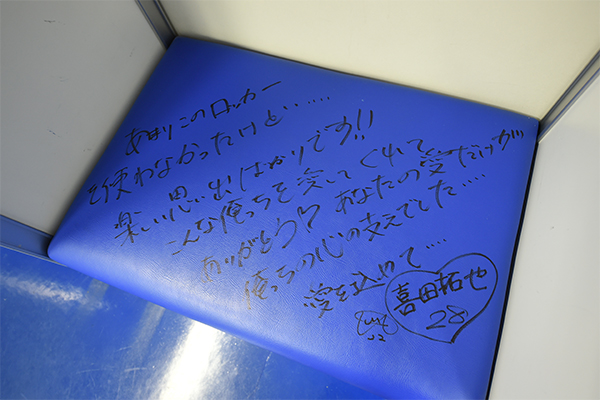 あまりこのロッカー
を使わなかったけど‥‥‥
楽しい思い出ばかりです!!
こんな俺らを愛してくれて
ありがとう!? あなたの愛だけが
俺らの心の支えでした‥‥
愛を込めて‥‥
喜田拓也
28